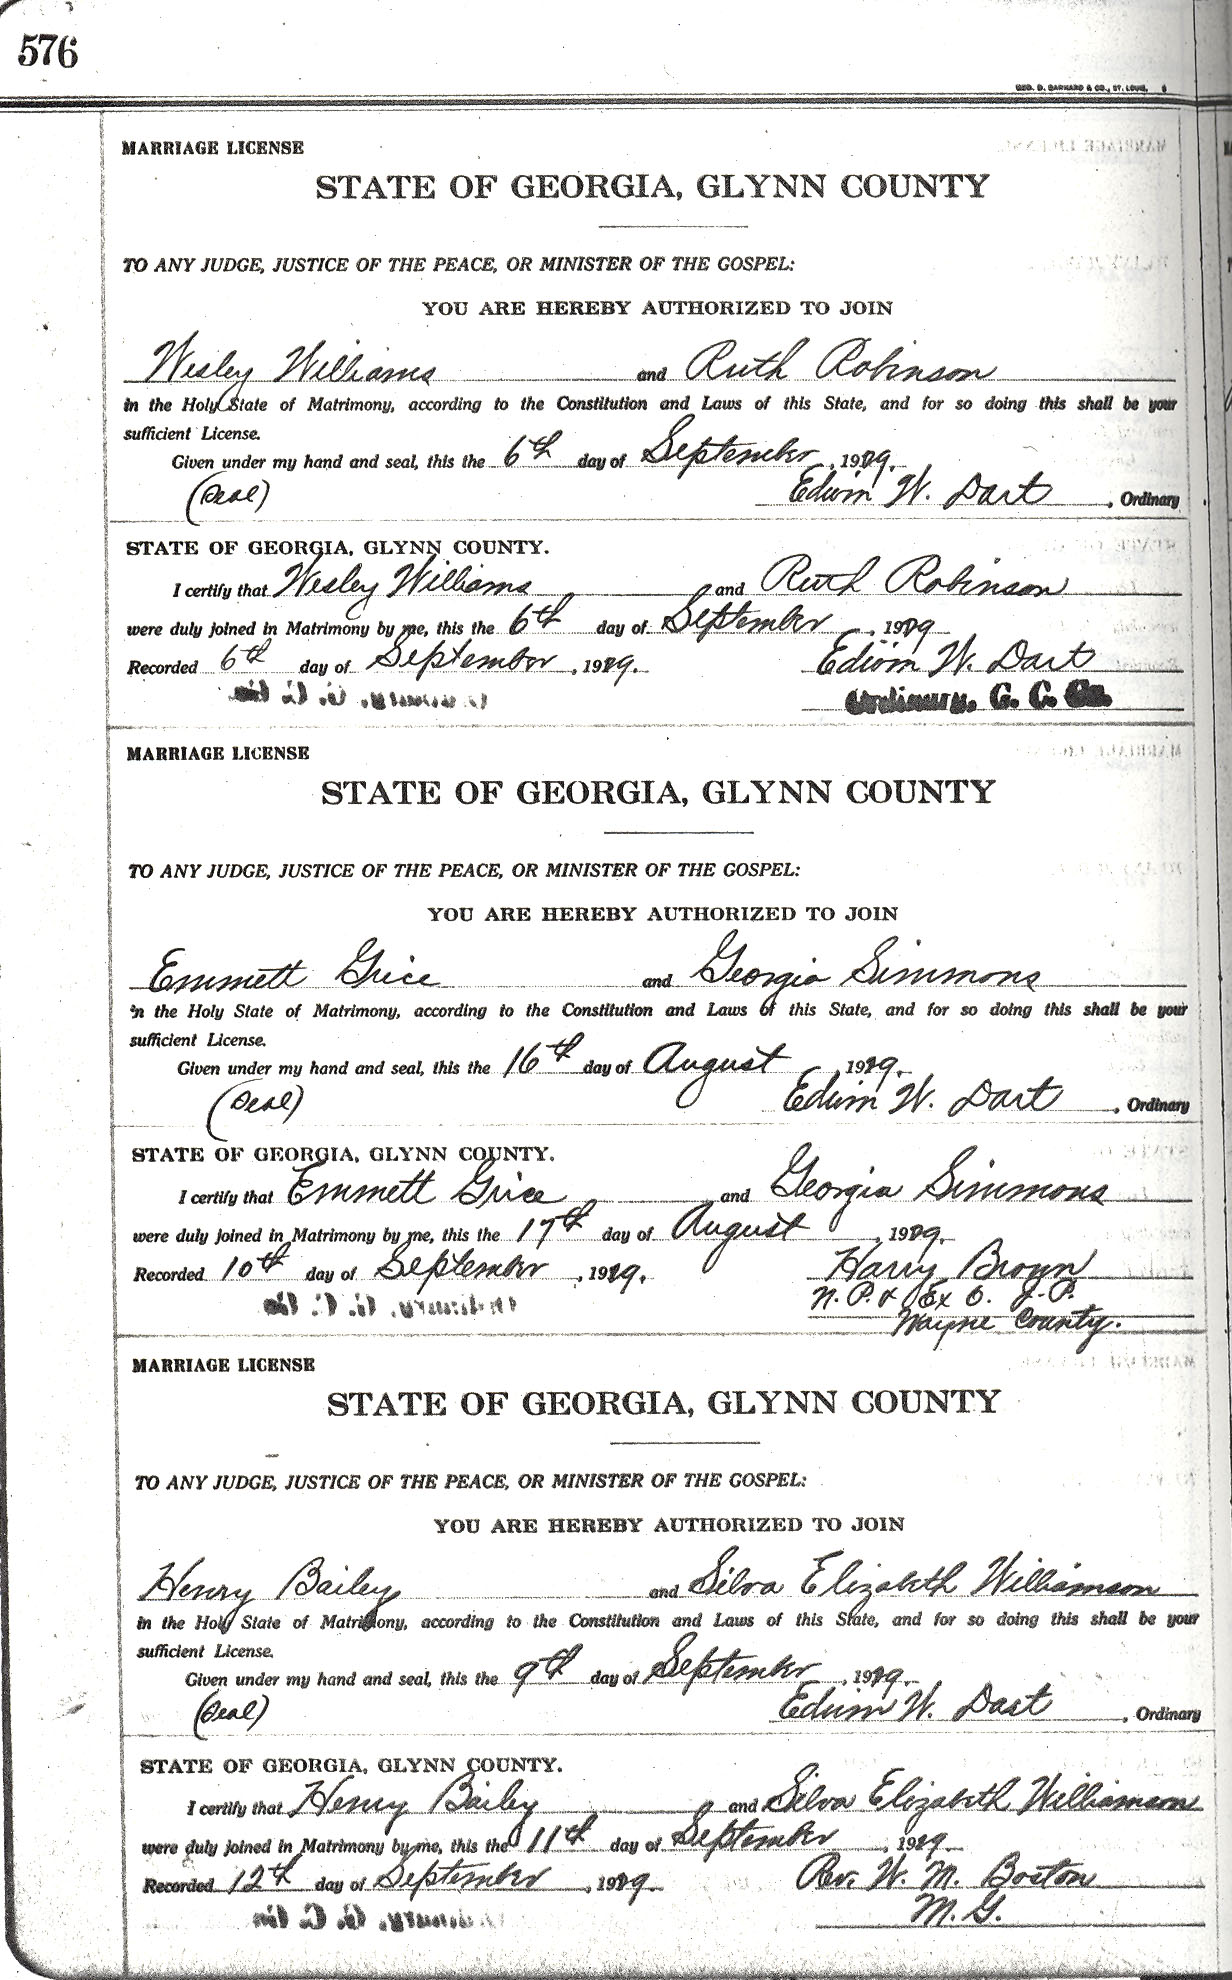 576
GEO. D. BARNARD & CO., ST. LOUIS.
MARRIAGE LICENSE
STATE OF GEORGIA, GLYNN COUNTY
TO ANY JUDGE, JUSTICE OF THE PEACE, OR MINISTER OF THE GOSPEL:
YOU ARE HEREBY AUTHORIZED TO JOIN
Wesley Williams and Ruth Robinson
in the Holy State of Matrimony, according to the Constitution and Laws of this State, and for so doing this shall be your
sufficient License.
Given under my hand and seal, this the 6th day of September, 19
(Seal) Edwin W. Dart, Ordinary
STATE OF GEORGIA, GLYNN COUNTY.
I certify that Wesley Williams and Ruth Robinson
were duly joined in Matrimony by me, this the 6th day of September, 19
Recorded 6th day of September, 19 Edwin W. Dart
Ordinary, G. C. Ga.
MARRIAGE LICENSE
STATE OF GEORGIA, GLYNN COUNTY
TO ANY JUDGE, JUSTICE OF THE PEACE, OR MINISTER OF THE GOSPEL:
YOU ARE HEREBY AUTHORIZED TO JOIN
Emmett Grice and Georgia Simmons
in the Holy State of Matrimony, according to the Constitution and Laws of this State, and for so doing this shall be your
sufficient License.
Given under my hand and seal, this the 16th day of August, 19
(Seal) Edwin W. Dart, Ordinary
STATE OF GEORGIA, GLYNN COUNTY.
I certify that Emmett Grice and Georgia Simmons
were duly joined in Matrimony by me, this the 17th day of August, 19
Recorded 10th day of September, 19 Harry Brown
N. P. & Ex O. J. P.
Wayne County.
MARRIAGE LICENSE
STATE OF GEORGIA, GLYNN COUNTY
TO ANY JUDGE, JUSTICE OF THE PEACE, OR MINISTER OF THE GOSPEL:
YOU ARE HEREBY AUTHORIZED TO JOIN
Henry Bailey and Silva Elizabeth Williamson
in the Holy State of Matrimony, according to the Constitution and Laws of this State, and for so doing this shall be your
sufficient License.
Given under my hand and seal, this the 9th day of September, 19
(Seal) Edwin W. Dart, Ordinary
STATE OF GEORGIA, GLYNN COUNTY.
I certify that Henry Bailey and Silva Elizabeth Williamson
were duly joined in Matrimony by me, this the 11th day of September, 19
Recorded 12th day of September, 19 Rev. W. M. Boston
M. G.